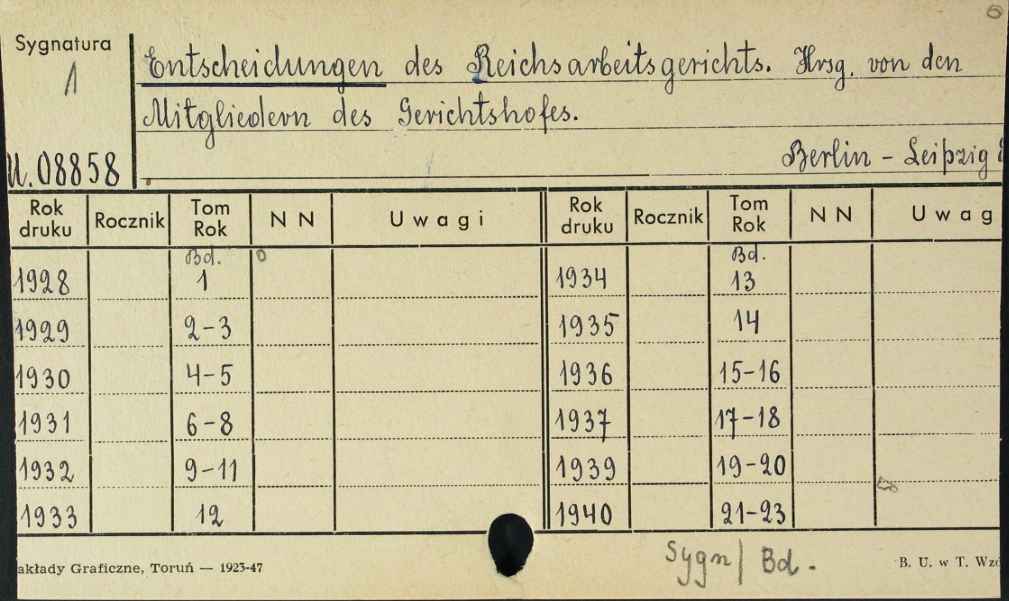 Sygnatura
1
U. 08858
Entscheidungen des Reichsarbeitsgerichts. Hrsg. von den
Mitgliedern des Gerichtshofes.
Berlin - Leipzig
Rok druku Rocznik Tom Rok N N Uwagi Rok druku Rocznik Tom Rok N N Uwag
Bd. Bd.
1928 1 1934 13
1929 2-3 1935 14
1930 4-5 1936 15-16
1931 6-8 1937 17-18
1932 9-11 1939 19-20
1933 12 1940 21-23
Sygn/ Bd.
akłady Graficzne, Toruń — 1923-47 B. U. w T. Wzó